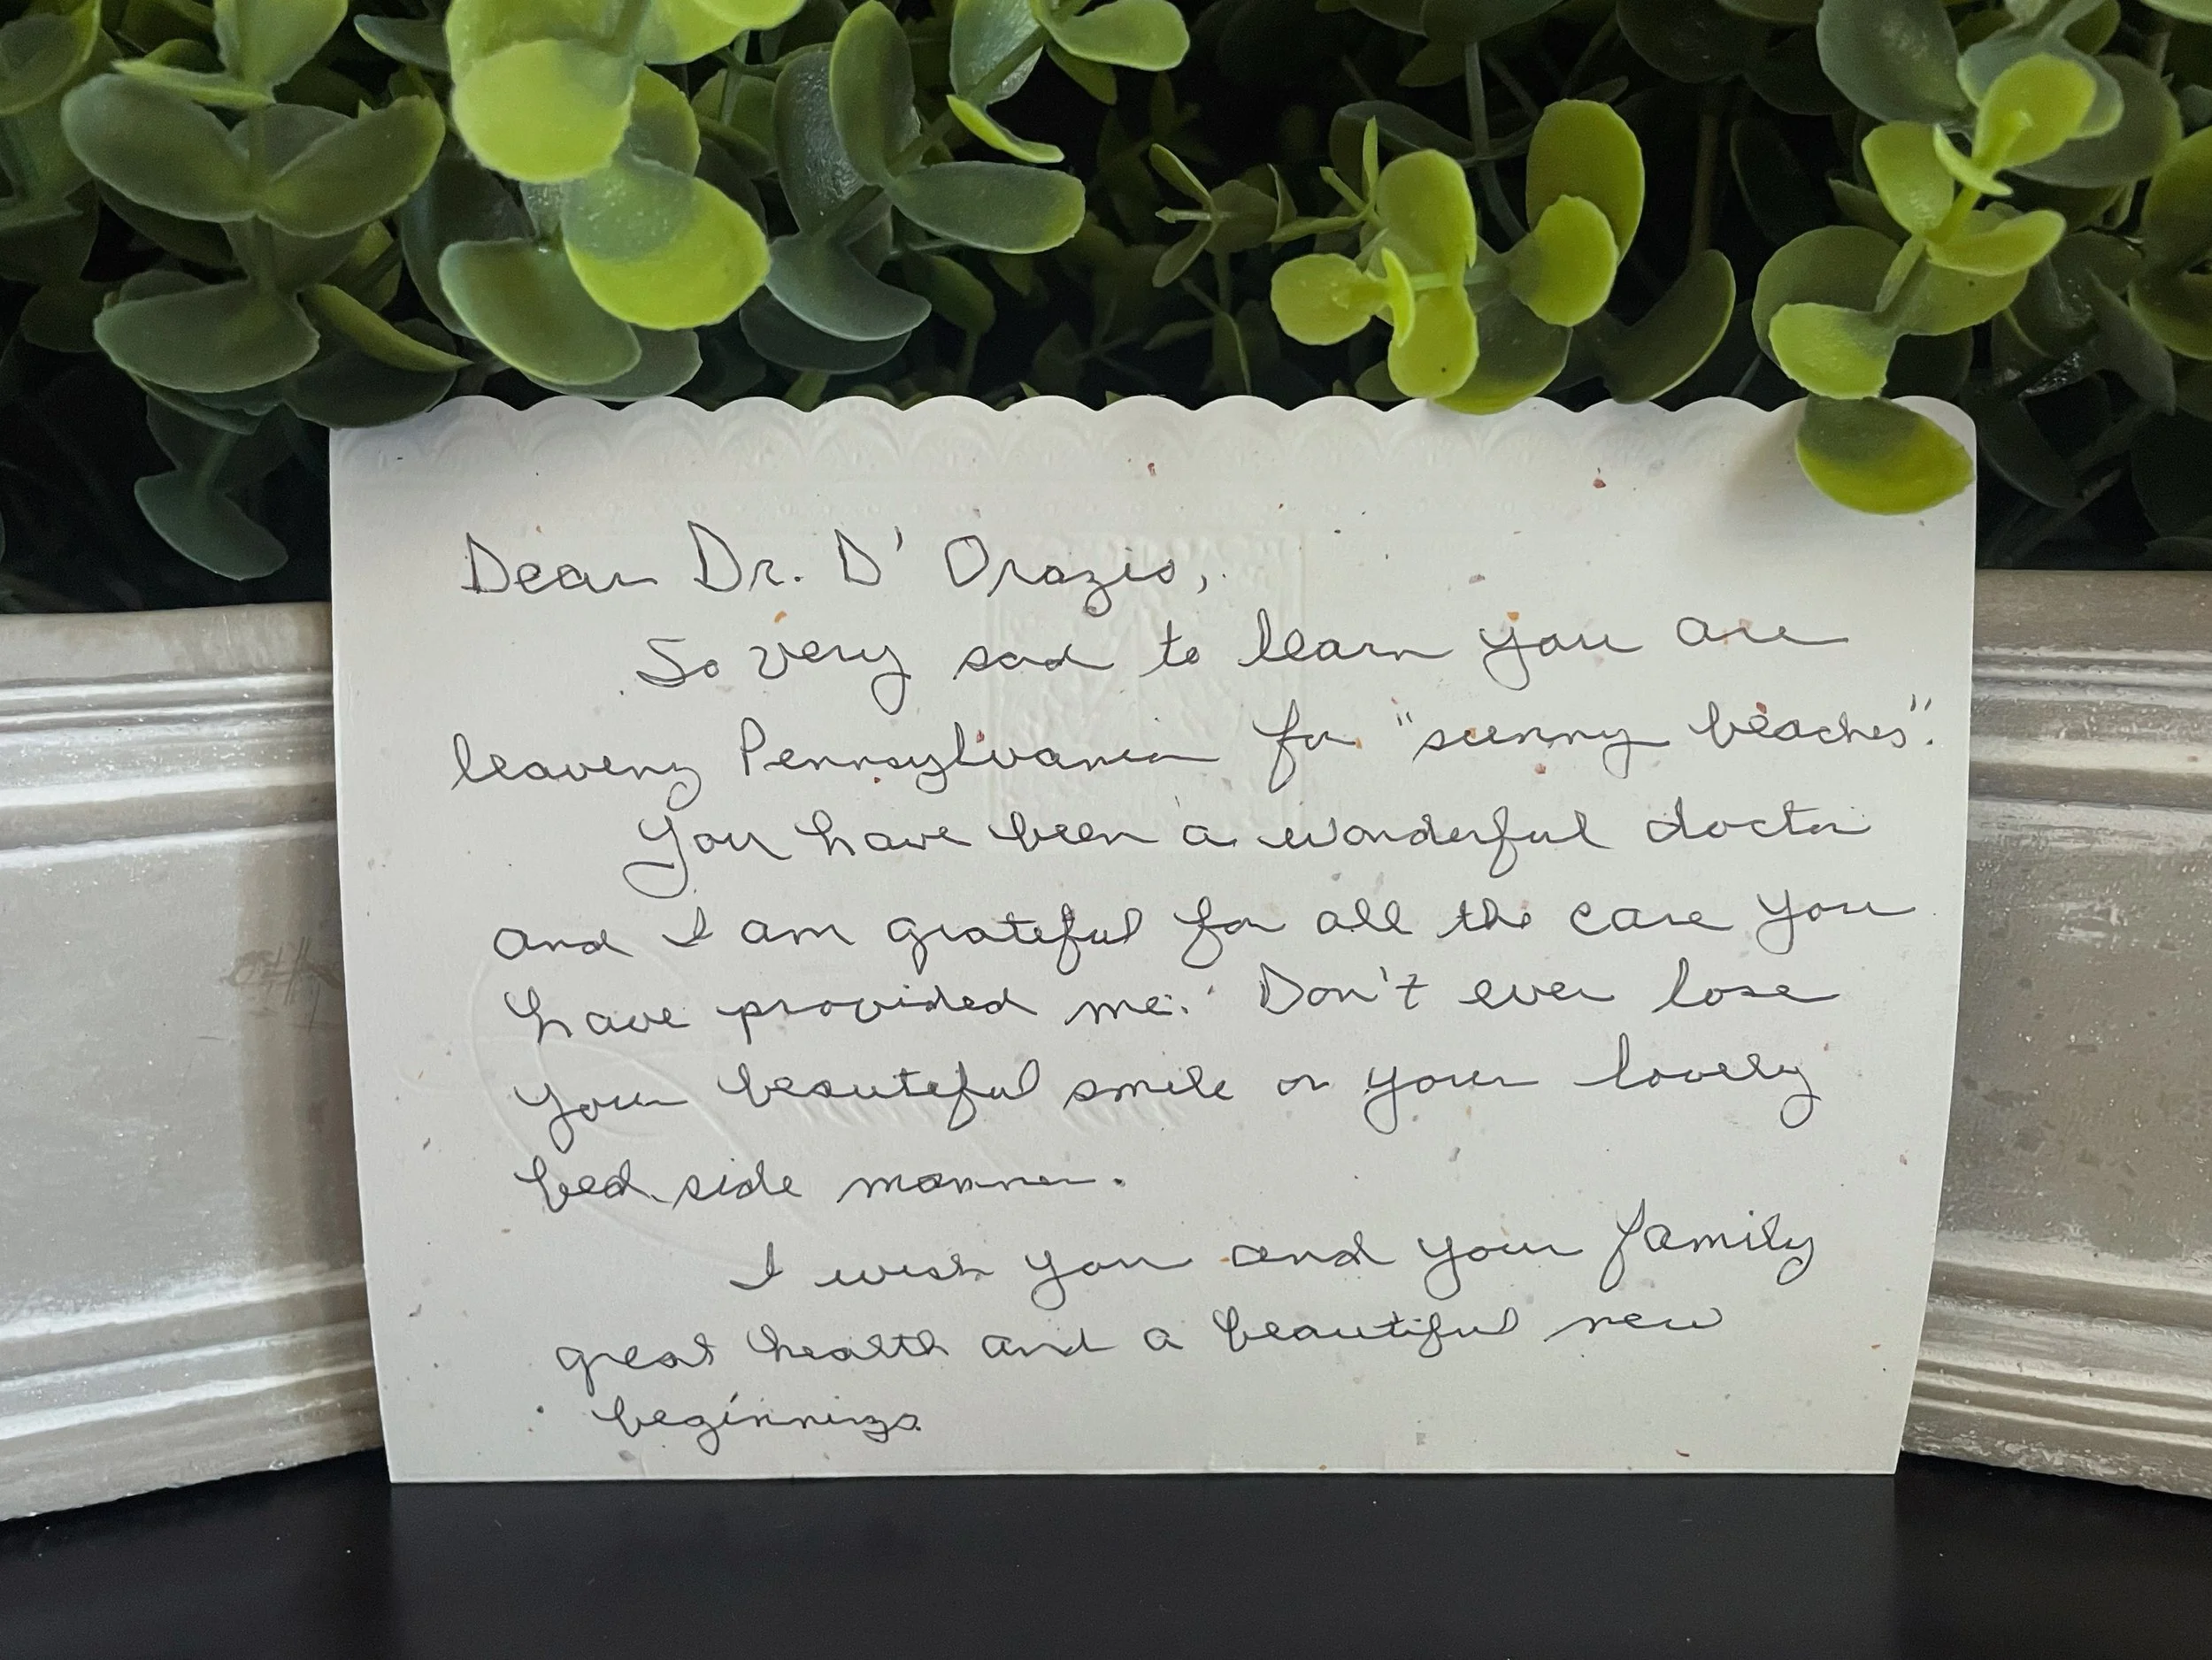 Dear Dr. D' Orazio,
So very sad to learn you are
leaving Pennsylvania for "sunny beaches".
You have been a wonderful doctor
and I am grateful for all the care you
have provided me. Don't ever lose
your beautiful smile or your lovely
bed side manner.
I wish you and your family
great health and a beautiful new
beginnings.